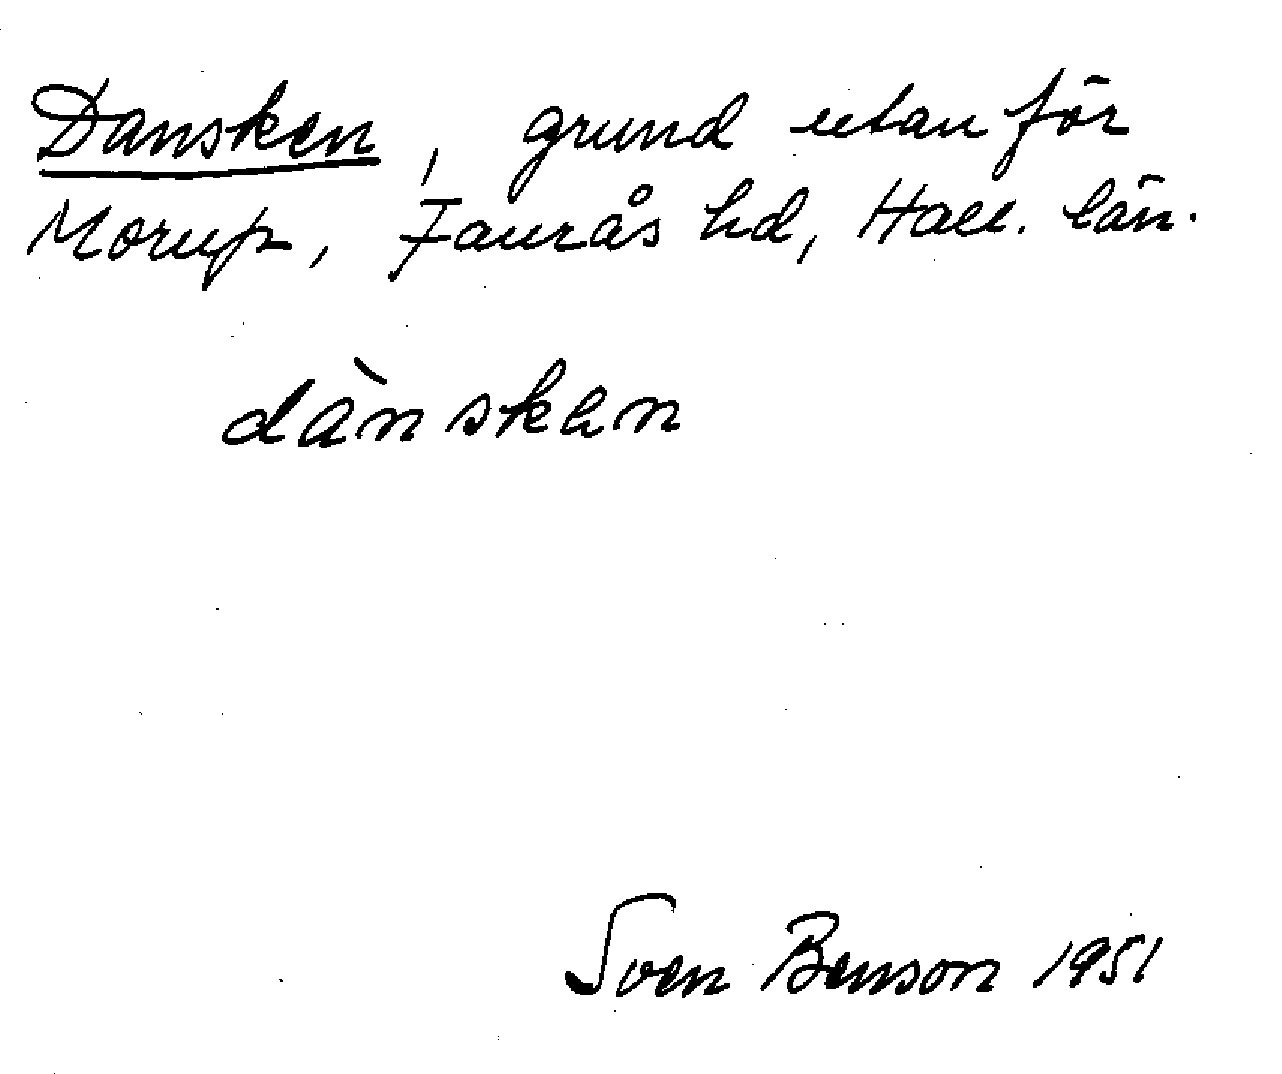 Dansken, grund utanför
Morup, Faurås hd, Hall. län.
dànsken
Sven Benson 1951